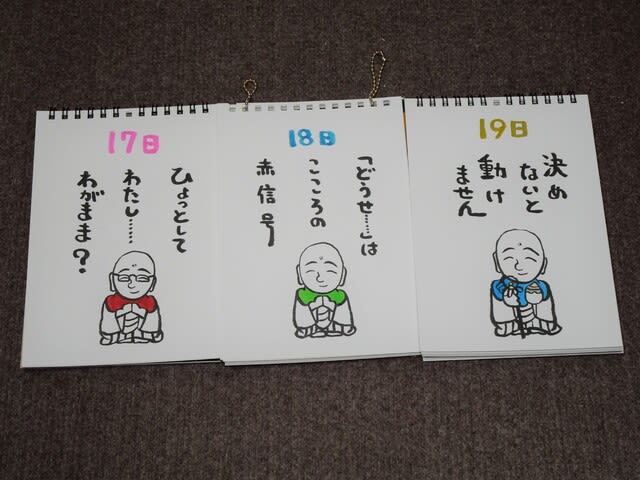 17日
ひょっとして
わたし……
わがまま?
18日
「どうせ……」は
こころの
赤信号
19日
決め
ないと
動け
ません